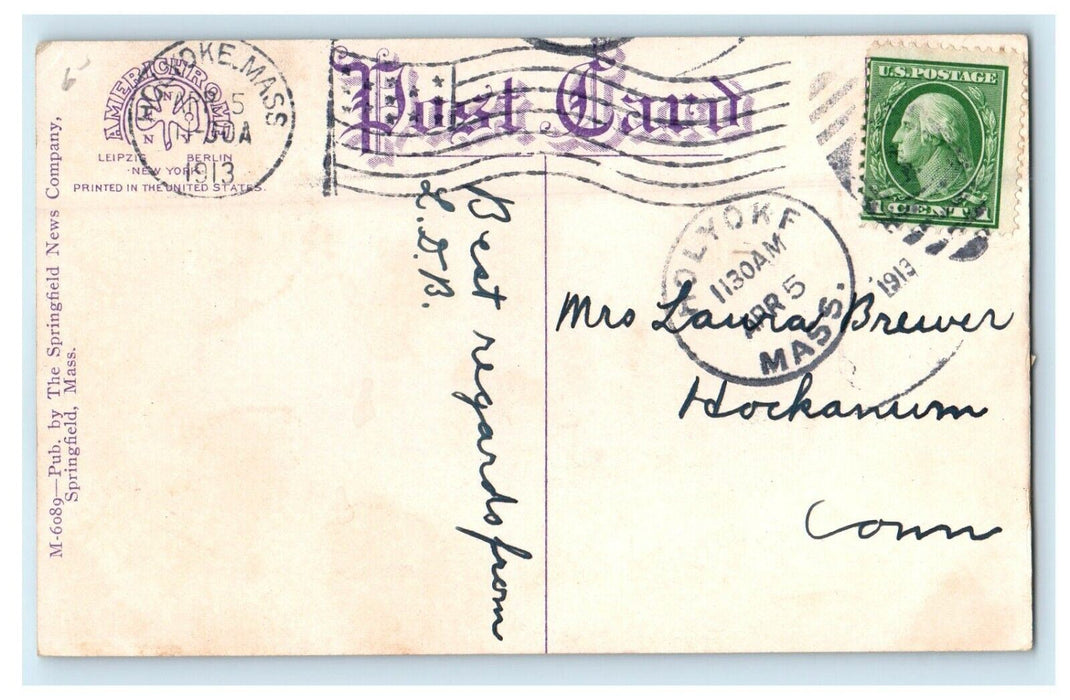 HOLYOKE, MASS
APR 5
30A
1913
AMERICHROME
LEIPZIG BERLIN
NEW YORK
PRINTED IN THE UNITED STATES.
Post Card
U.S. POSTAGE
1 CENT 1
HOLYOKE
1130AM
APR 5
MASS.
1913
M-6089—Pub. by The Springfield News Company,
Springfield, Mass.
Best regards from
L.D.B.
Mrs Laura Brewer
Hockanum
Conn